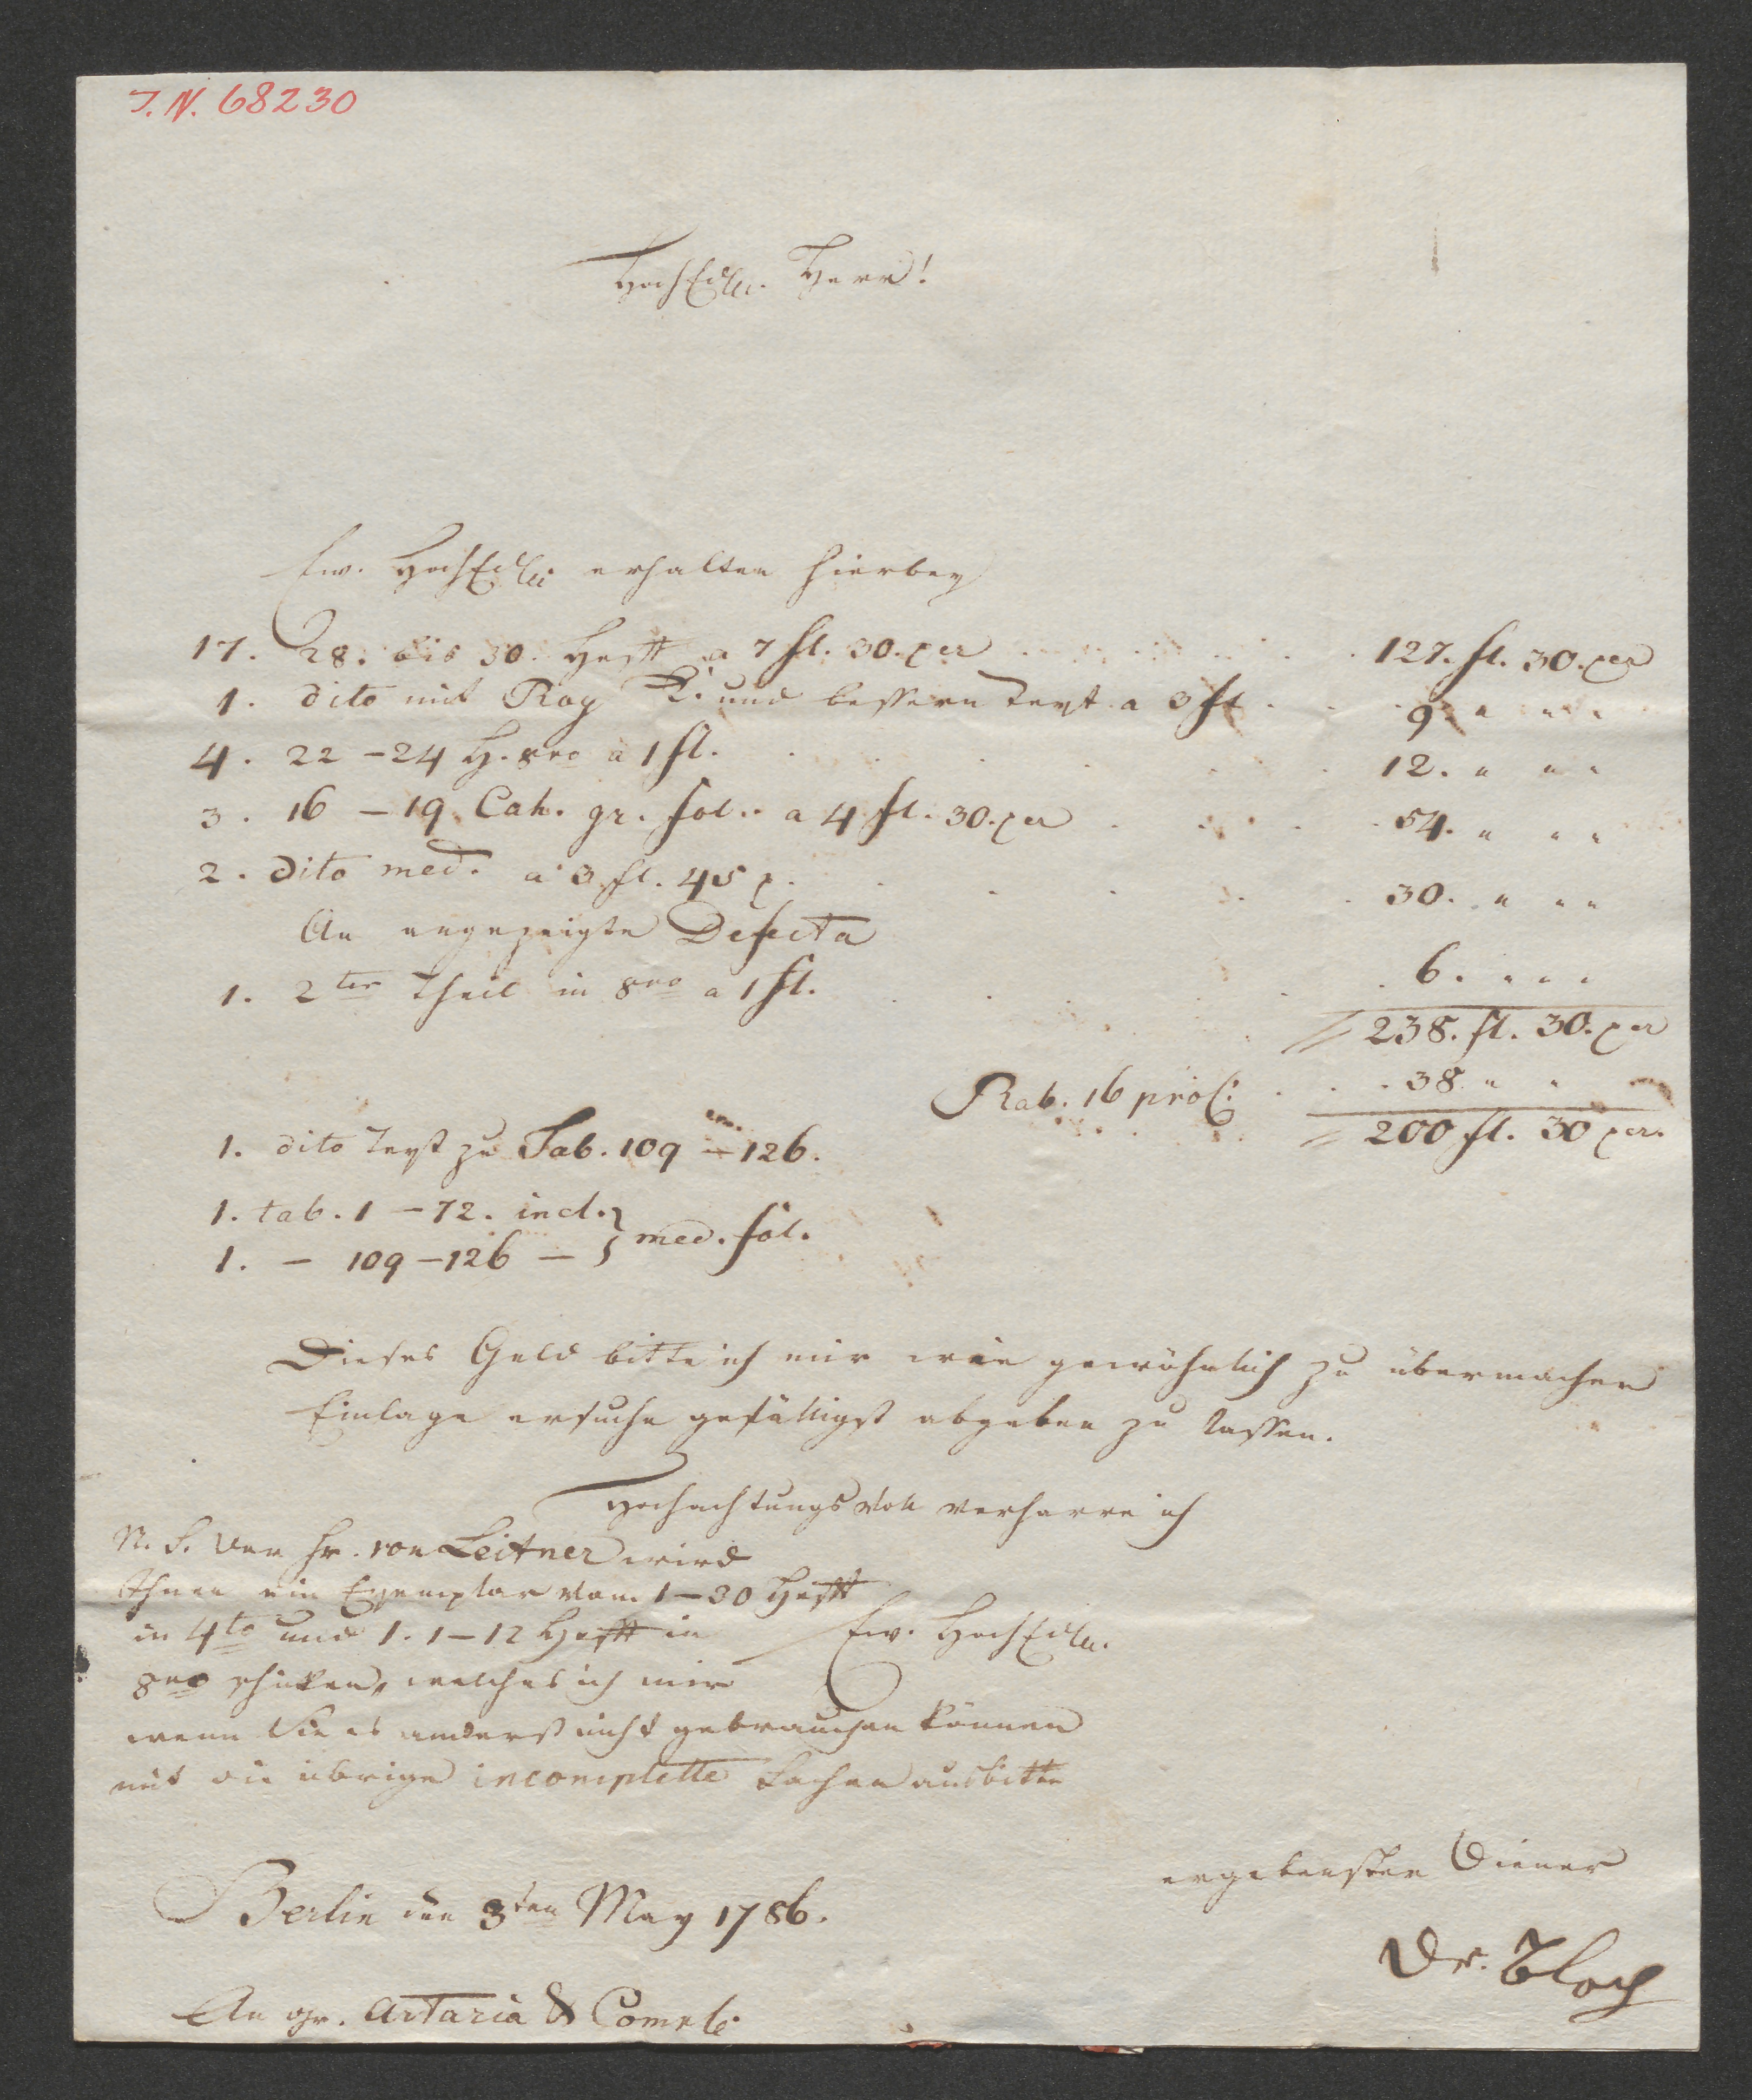 J. N. 68230
HochEdler Herr!
Ew. HochEdler erhalten hierbey
17. 28. bis 30. Hefft a 7 fl. 30. xer . . . . . 127. fl. 30. xer
1. dito mit Roy P. und bessern Text a 3 fl . . . 9. " " "
4. 22 – 24 H. 8vo a 1 fl. . . . . . 12. " " "
3. 16 – 19. Cah. gr. fol. a 4 fl. 30. xer . . . . 54. " " "
2. dito med. a 3 fl. 45 x. . . . . . 30. " " "
An angezeigte Defecta
1. 2ter Theil in 8vo a 1 fl. . . . . . 6. " " "
238. fl. 30. xer
Rab. 16 proC: . . . 38 " "
200 fl. 30 xer.
1. dito Text zu Tab. 109 – 126.
1. tab. 1 – 72. incl. } med. fol.
1. – 109 – 126 – }
Dieses Geld bitte ich mir wie gewöhnlich zu übermachen
Einlage ersuche gefälligst abgeben zu lassen.
Hochachtungsvoll verharre ich
N. S. Der Hr. von Leitner wird
Ihnen ein Exemplar vom 1 – 30 Hefft
in 4to und 1. 1 – 12 Hefft in
8vo schicken, welches ich mir
wenn Sie es anderst nicht gebrauchen können
mit die übrige incomplette Sachen ausbitte
Ew. HochEdler
ergebenster Diener
Dr. Bloch
Berlin den 3ten May 1786.
An Hr. Artaria & Comp: